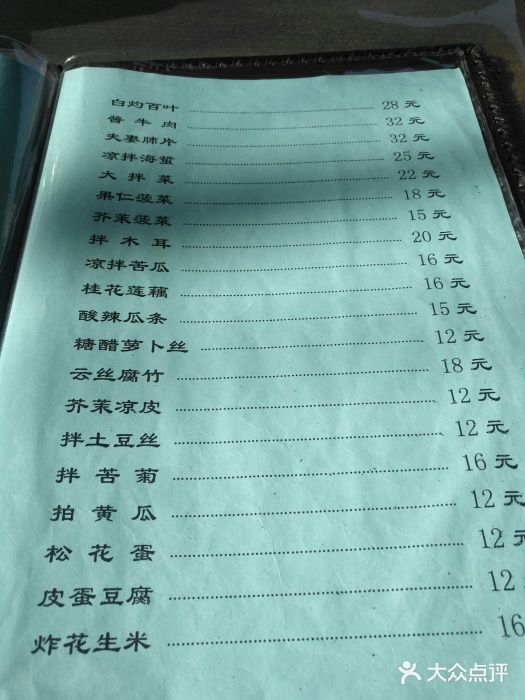 白灼百叶 28 元
酱牛肉 32 元
夫妻肺片 32 元
凉拌海蜇 25 元
大拌菜 22 元
果仁菠菜 18 元
芥茉菠菜 15 元
拌木耳 20 元
凉拌苦瓜 16 元
桂花莲藕 16 元
酸辣瓜条 15 元
糖醋萝卜丝 12 元
云丝腐竹 18 元
芥茉凉皮 12 元
拌土豆丝 12 元
拌苦菊 16 元
拍黄瓜 12 元
松花蛋 12 元
皮蛋豆腐 12
炸花生米 16
大众点评